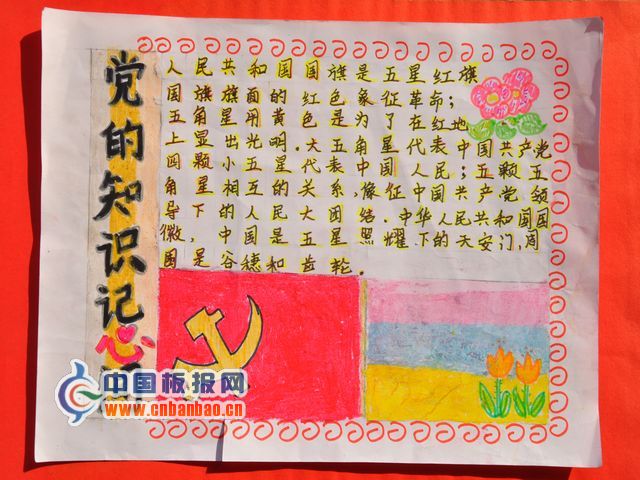 党的知识记心
人民共和国国旗是五星红旗
国旗旗面的红色象征革命；
五角星用黄色是为了在红地
上显出光明．大五角星代表中国共产党
四颗小五星代表中国人民；五颗五
角星相互的关系，像征中国共产党领
导下的人民大团结．中华人民共和国国
徽，中国是五星照耀下的天安门，周
围是谷穗和齿轮．
中国板报网
www.cnbanbao.cn